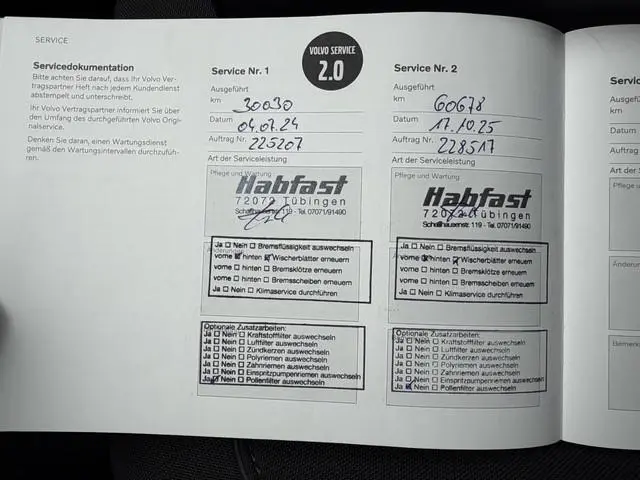 SERVICE
Servicedokumentation
Bitte achten Sie darauf, dass Ihr Volvo Ver-
tragspartner Heft nach jedem Kundendienst
abstempelt und unterschreibt.
Ihr Volvo Vertragspartner informiert Sie über
den Umfang des durchgeführten Volvo Origi-
nalservice.
Denken Sie daran, einen Wartungsdienst
gemäß den Wartungsintervallen durchzufüh-
ren.
VOLVO SERVICE
2.0
Service Nr. 1
Ausgeführt
km 30030
Datum 04.07.24
Auftrag Nr. 225207
Art der Serviceleistung
Pflege und Wartung
Habfast
72072 Tübingen
Schaffhausenstr. 119 - Tel. 07071/91490
Ja ☐ Nein ☐ Bremsflüssigkeit auswechseln
vorne ☒ hinten ☒ Wischerblätter erneuern
vorne ☐ hinten ☐ Bremsklötze erneuern
vorne ☐ hinten ☐ Bremsscheiben erneuern
Ja ☐ Nein ☐ Klimaservice durchführen
Optionale Zusatzarbeiten:
Ja ☐ Nein ☐ Kraftstofffilter auswechseln
Ja ☐ Nein ☐ Luftfilter auswechseln
Ja ☐ Nein ☐ Zündkerzen auswechseln
Ja ☐ Nein ☐ Polyriemen auswechseln
Ja ☐ Nein ☐ Zahnriemen auswechseln
Ja ☐ Nein ☐ Einspritzpumpenriemen auswechseln
Ja ☒ Nein ☐ Pollenfilter auswechseln
Service Nr. 2
Ausgeführt
km 60678
Datum 17.10.25
Auftrag Nr. 228517
Art der Serviceleistung
Pflege und Wartung
Habfast
72072 Tübingen
Schaffhausenstr. 119 - Tel. 07071/91490
Ja ☐ Nein ☐ Bremsflüssigkeit auswechseln
vorne ☒ hinten ☒ Wischerblätter erneuern
vorne ☐ hinten ☐ Bremsklötze erneuern
vorne ☐ hinten ☐ Bremsscheiben erneuern
Ja ☐ Nein ☐ Klimaservice durchführen
Optionale Zusatzarbeiten:
Ja ☐ Nein ☐ Kraftstofffilter auswechseln
Ja ☐ Nein ☐ Luftfilter auswechseln
Ja ☐ Nein ☐ Zündkerzen auswechseln
Ja ☐ Nein ☐ Polyriemen auswechseln
Ja ☐ Nein ☐ Zahnriemen auswechseln
Ja ☐ Nein ☐ Einspritzpumpenriemen auswechseln
Ja ☒ Nein ☐ Pollenfilter auswechseln
km
Datum
Auftrag